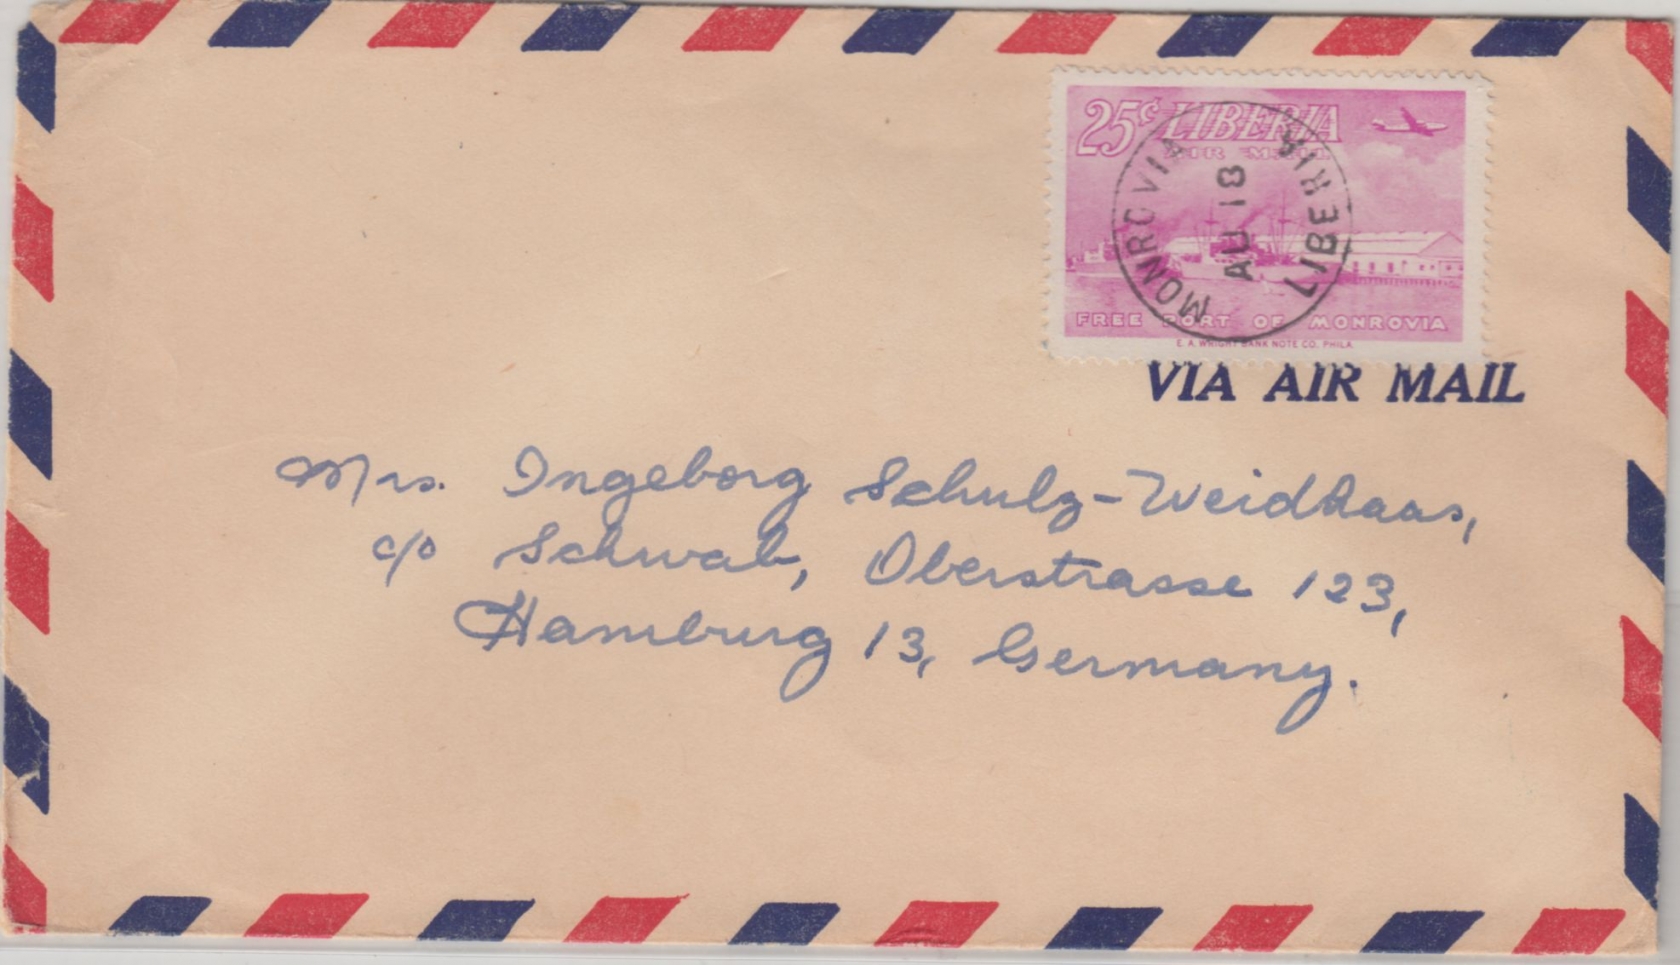 25¢ LIBERIA
AIR MAIL
MONROVIA
AU 18
LIBERIA
FREE PORT OF MONROVIA
E. A. WRIGHT BANK NOTE CO. PHILA.
VIA AIR MAIL
Mrs. Ingeborg Schulz-Weidhaas,
c/o Schwab, Oberstrasse 123,
Hamburg 13, Germany.